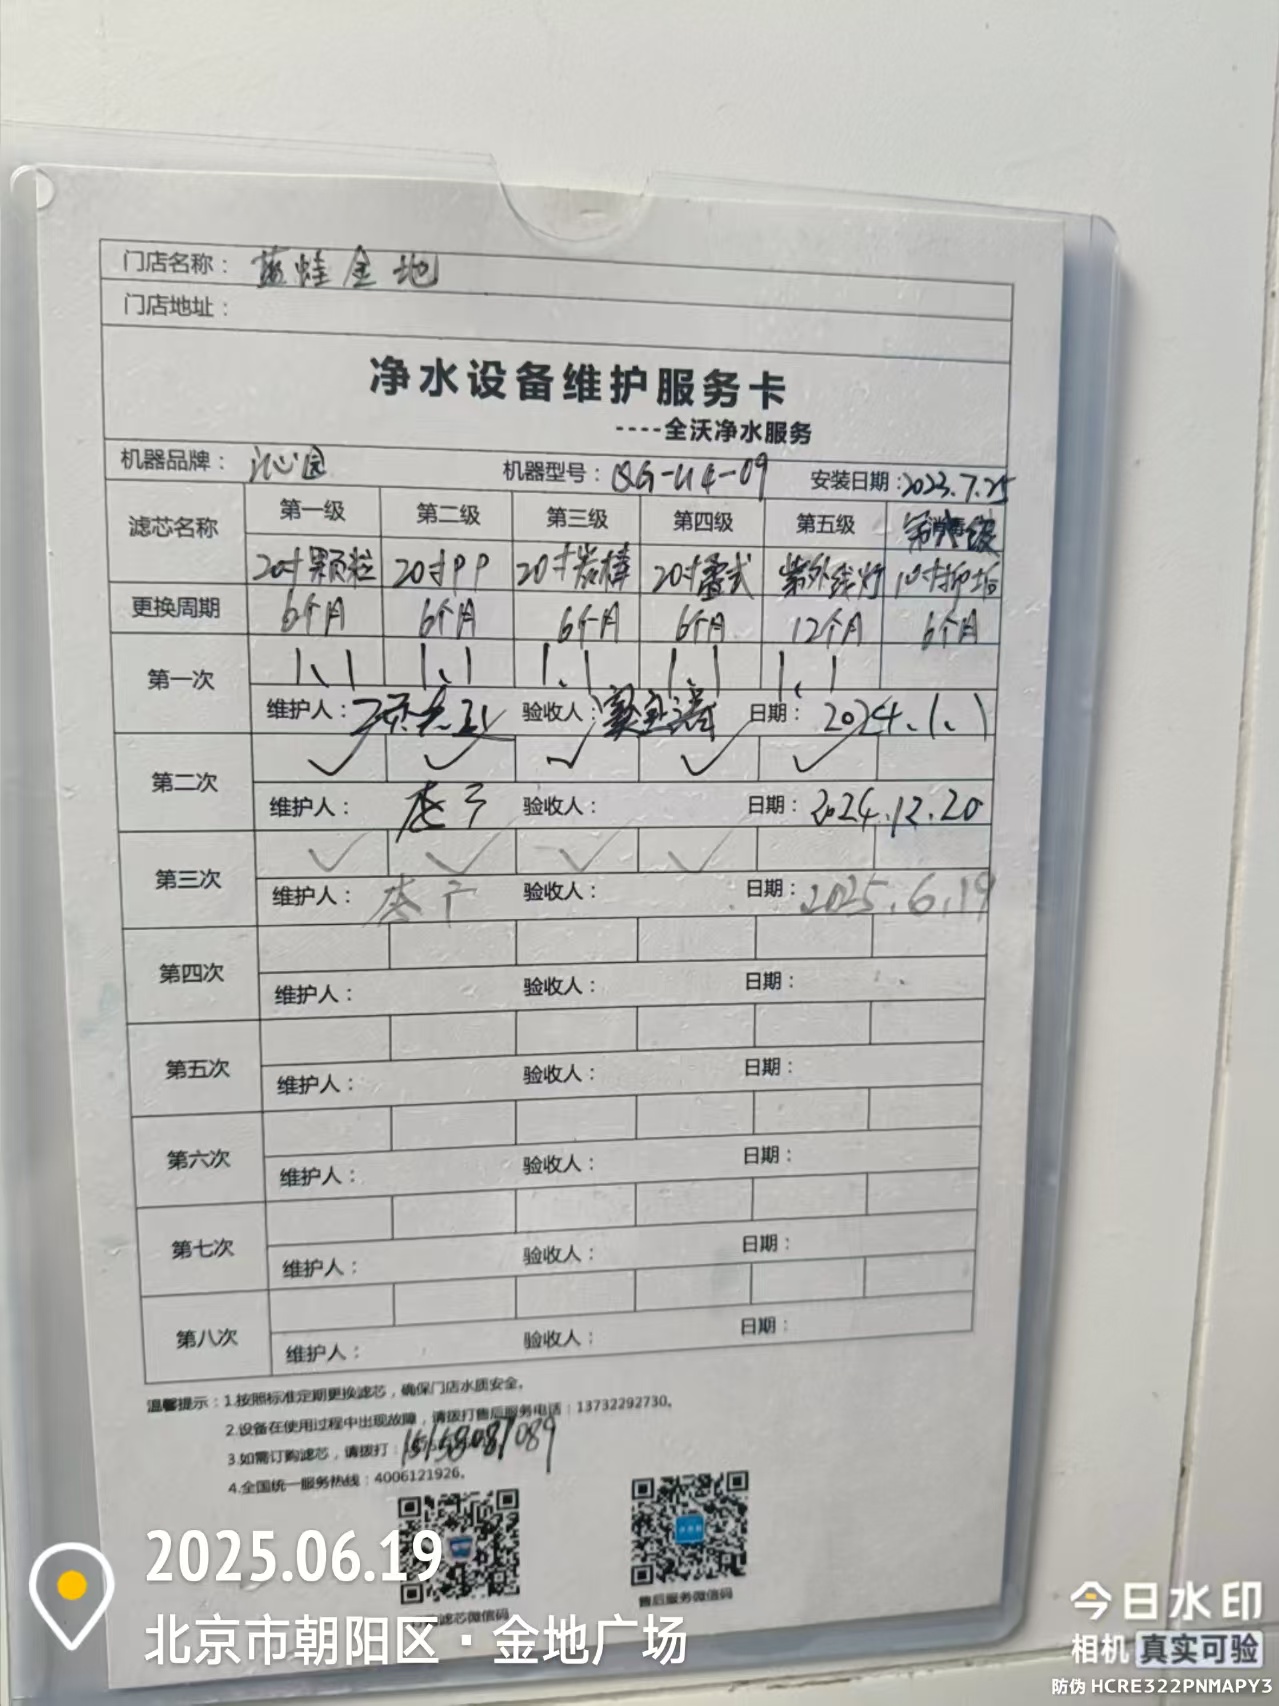 门店名称： 蓝蛙金地
门店地址：
净水设备维护服务卡
----全沃净水服务
机器品牌： 沁园 机器型号： QG-U4-09 安装日期：2023.7.25
滤芯名称 第一级 第二级 第三级 第四级 第五级
20寸颗粒 20寸PP 20寸炭棒 20寸叠式 紫外线灯 10寸抑垢
更换周期 6个月 6个月 6个月 6个月 12个月 6个月
第一次 1.1 1.1 1.1 1.1 1.1
维护人： 验收人： 日期： 2024.1.1
第二次 ✓ ✓ ✓ ✓ ✓
维护人： 验收人： 日期： 2024.12.20
第三次 ✓ ✓ ✓ ✓
维护人： 验收人： 日期： 2025.6.19
第四次
维护人： 验收人： 日期：
第五次
维护人： 验收人： 日期：
第六次
维护人： 验收人： 日期：
第七次
维护人： 验收人： 日期：
第八次
维护人： 验收人： 日期：
温馨提示：1.按照标准定期更换滤芯，确保门店水质安全。
2.设备在使用过程中出现故障，请拨打售后服务电话：13732292730。
3.如需订购滤芯，请拨打：15158087089
4.全国统一服务热线：4006121926。
滤芯微信码 售后服务微信码
2025.06.19
北京市朝阳区·金地广场
今日水印
相机 真实可验
防伪 HCRE322PNMAPY3